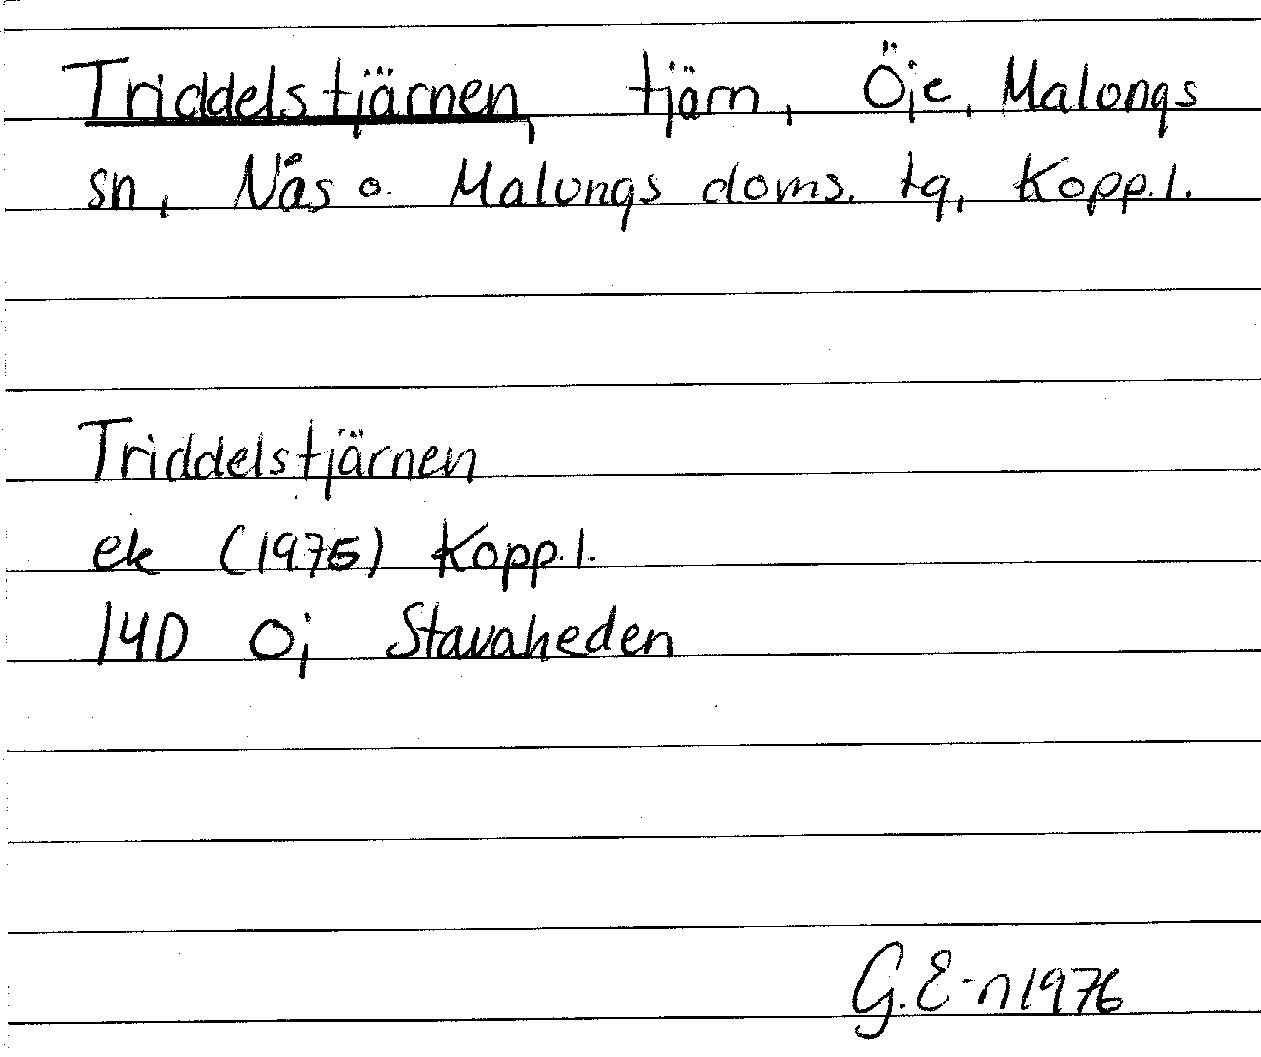 Triddelstjärnen, tjärn, Öje, Malungs
sn, Nås o. Malungs doms. tg, Kopp.l.
Triddelstjärnen
ek (1975) Kopp.l.
14D 0j Stavaheden
G.E-n 1976